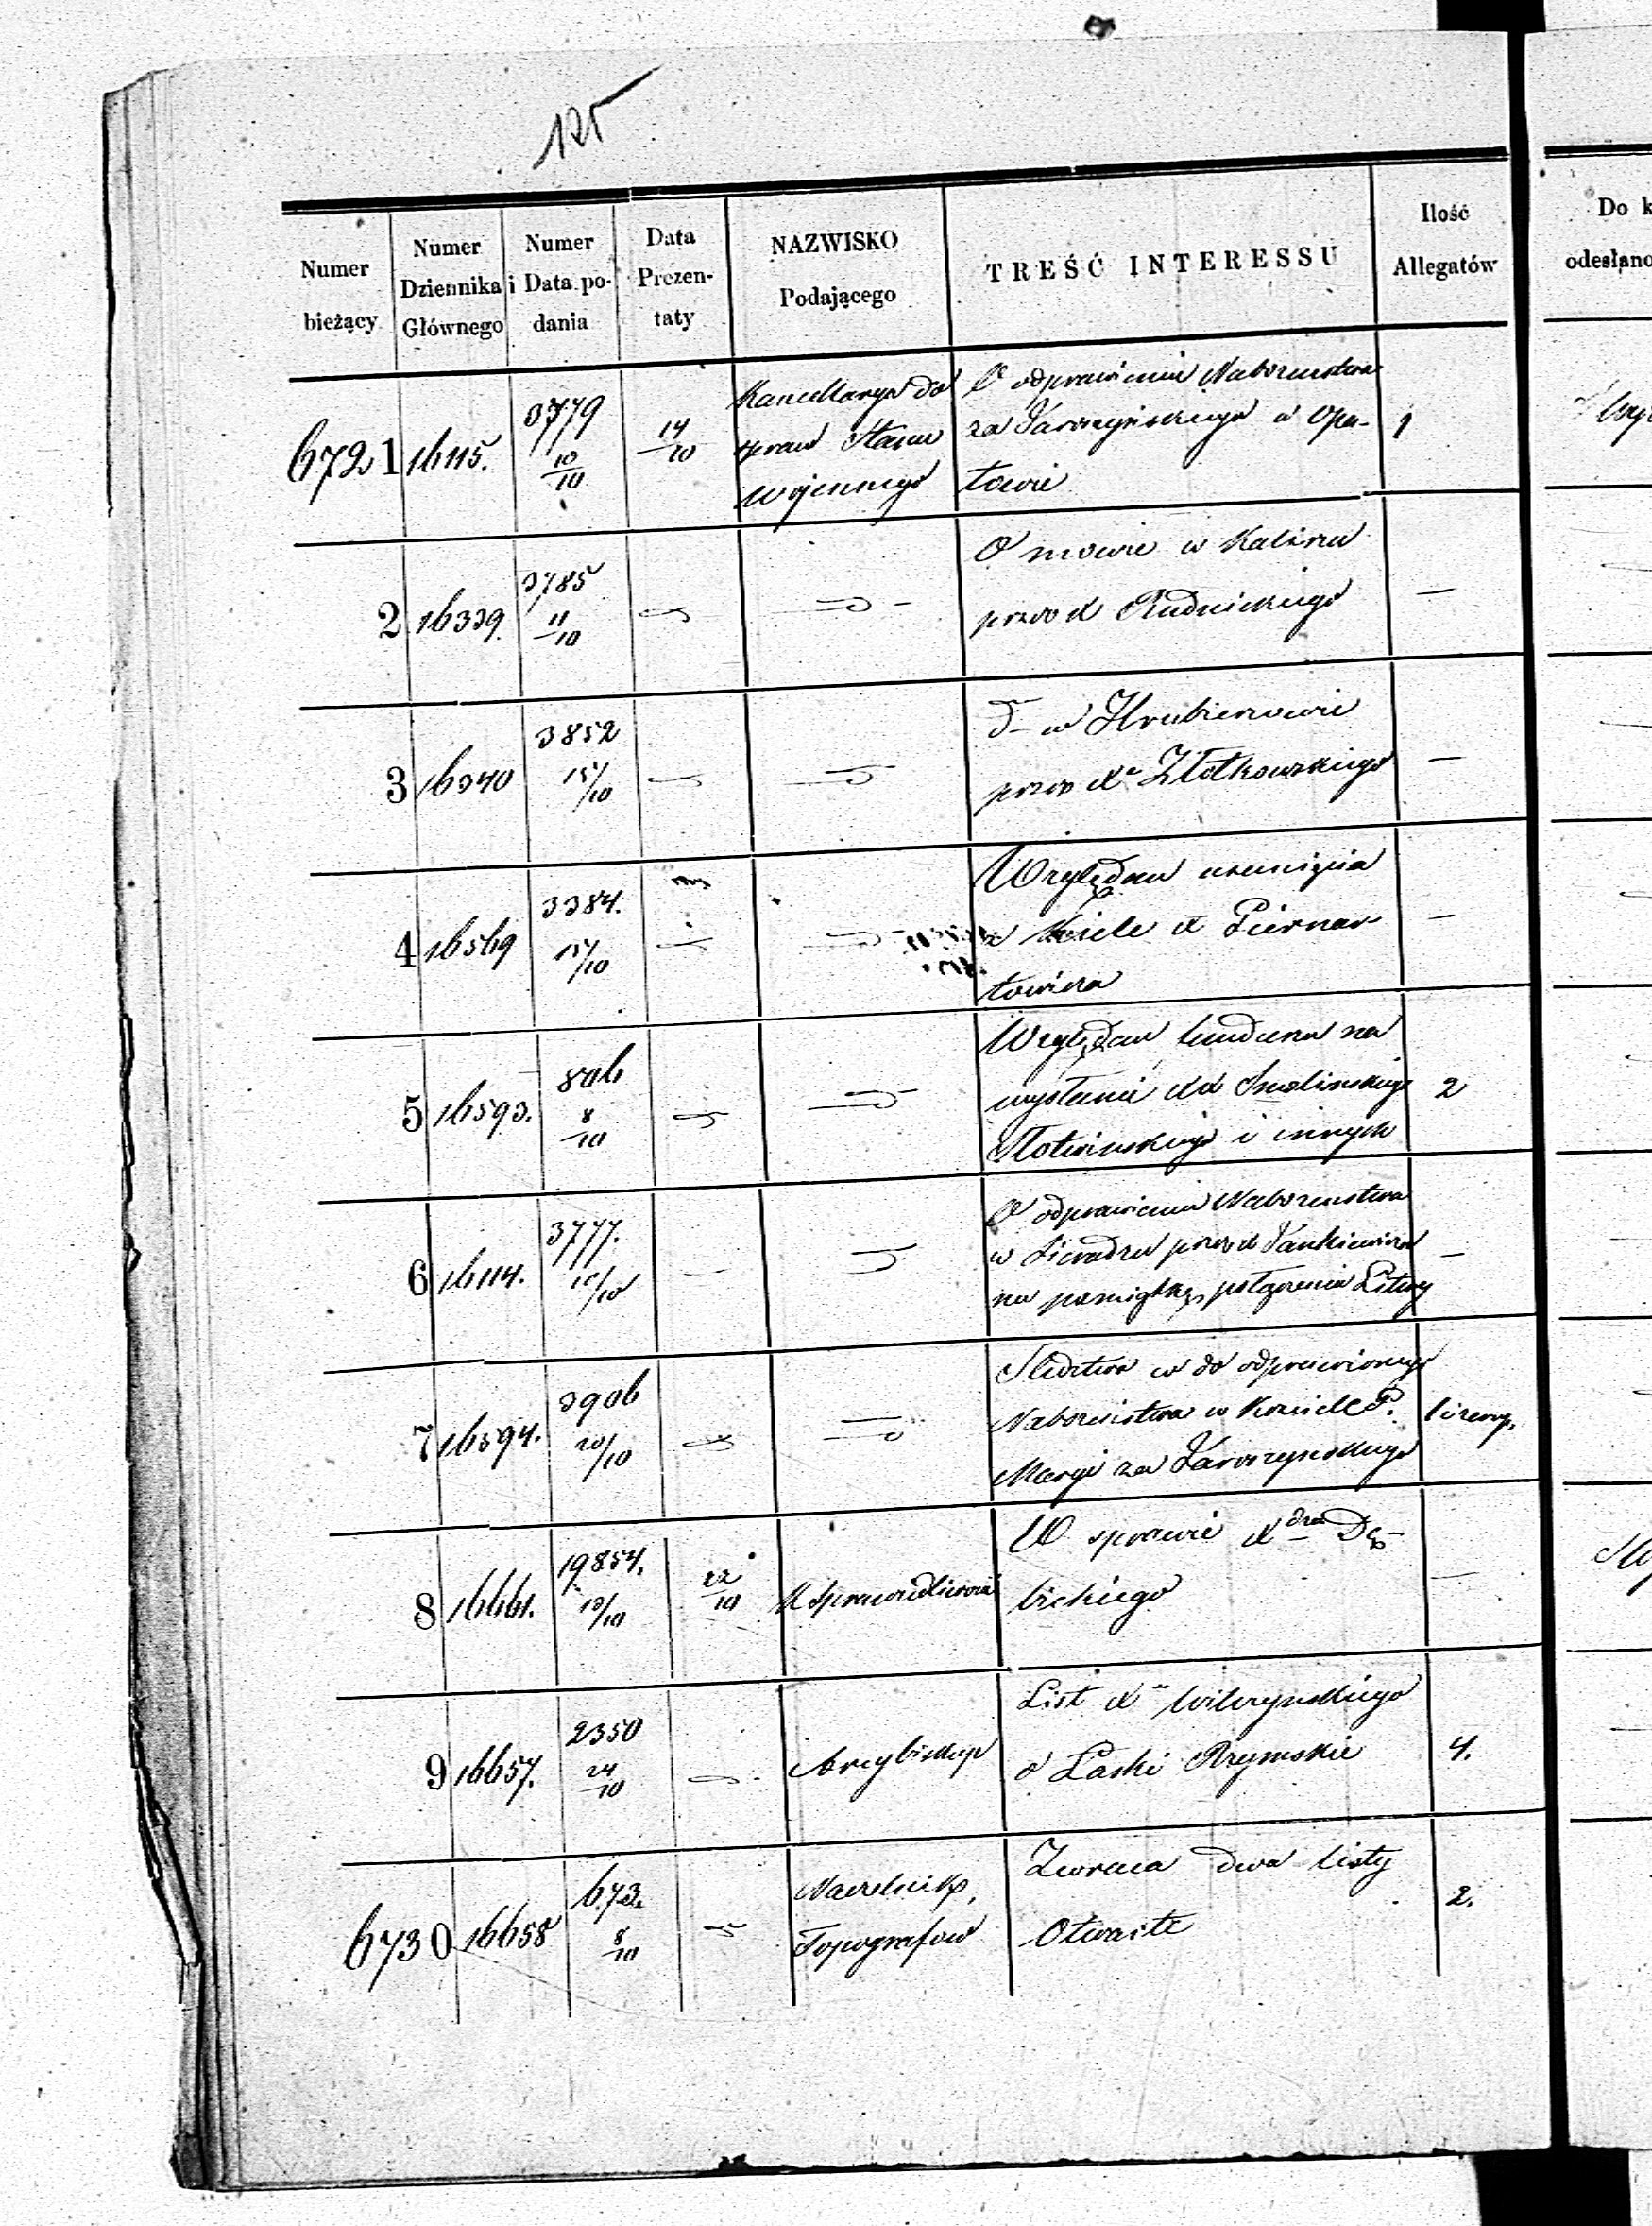 125
Numer bieżący
Numer Dziennika Głównego
Numer i Data podania
Data Prezen-taty
NAZWISKO Podającego
TREŚĆ INTERESSU
Ilość Allegatów
Do k
odesłano
6721 16115. 3779 10/10 14/10
Kancellarya do
spraw Stanu
Wojennego
O odprawieniu Nabożeństwa
za Jaroszyńskiego w Opa-
towie
1
2 16339. 3785 11/10
O mowie w Kaliszu
przez X Rudnickiego
—
3 16340 3852 15/10
d- w Hrubieszowie
przez Xa Złotkowskiego
—
4 16569 3384. 15/10
Względem usunięcia
z Kielc X Piernar
towicza
—
5 16593. 806 8/10
Względem funduszu na
wysłanie XX
i innych
2
6 16114. 3777. 10/10
O odprawieniu Nabożeństwa
w Sieradzu przez X Jankiewicza
na pamiątkę połączenia Litwy
—
7 16594. 3906 20/10
Śledztwo w do odprawionego
Nabożeństwa w Kościele P.
Maryi za Jaroszyńskiego
8 16661. 19854. 18/10 22/10
K Sprawiedliwości
W sprawie Xdza Dę-
bickiego
—
9 16657. 2350 24/10
Arcybiskup
List Xa Wilczyńskiego
o Łaski Rzymskie
4.
6730 16658 673. 8/10
Naczelnik
Topografow
Zwraca dwa listy
Otwarte
2.